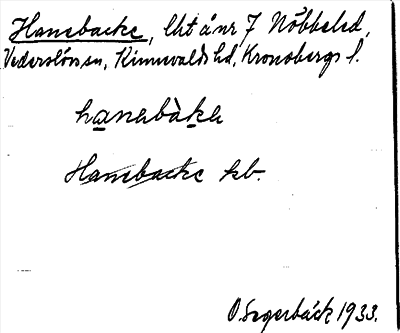 Hanebacke, lht å nr 7 Nöbbeled,
Vederslöv sn, Kinnevalds hd, Kronobergs l.
hanabàka
Hanebacke kb.
O. Segerbäck 1933.